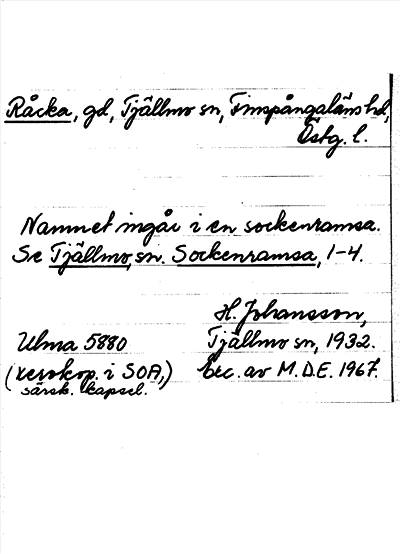 Råcka, gd, Tjällmo sn, Finspångaläns hd,
Östg. l.
Namnet ingår i en sockenramsa.
Se Tjällmo, sn. Sockenramsa, 1-4.
H. Johansson,
Ulma 5880 Tjällmo sn, 1932.
(xerokop. i SOA,) Exc. av M.D.E. 1967.
särsk. kapsel.